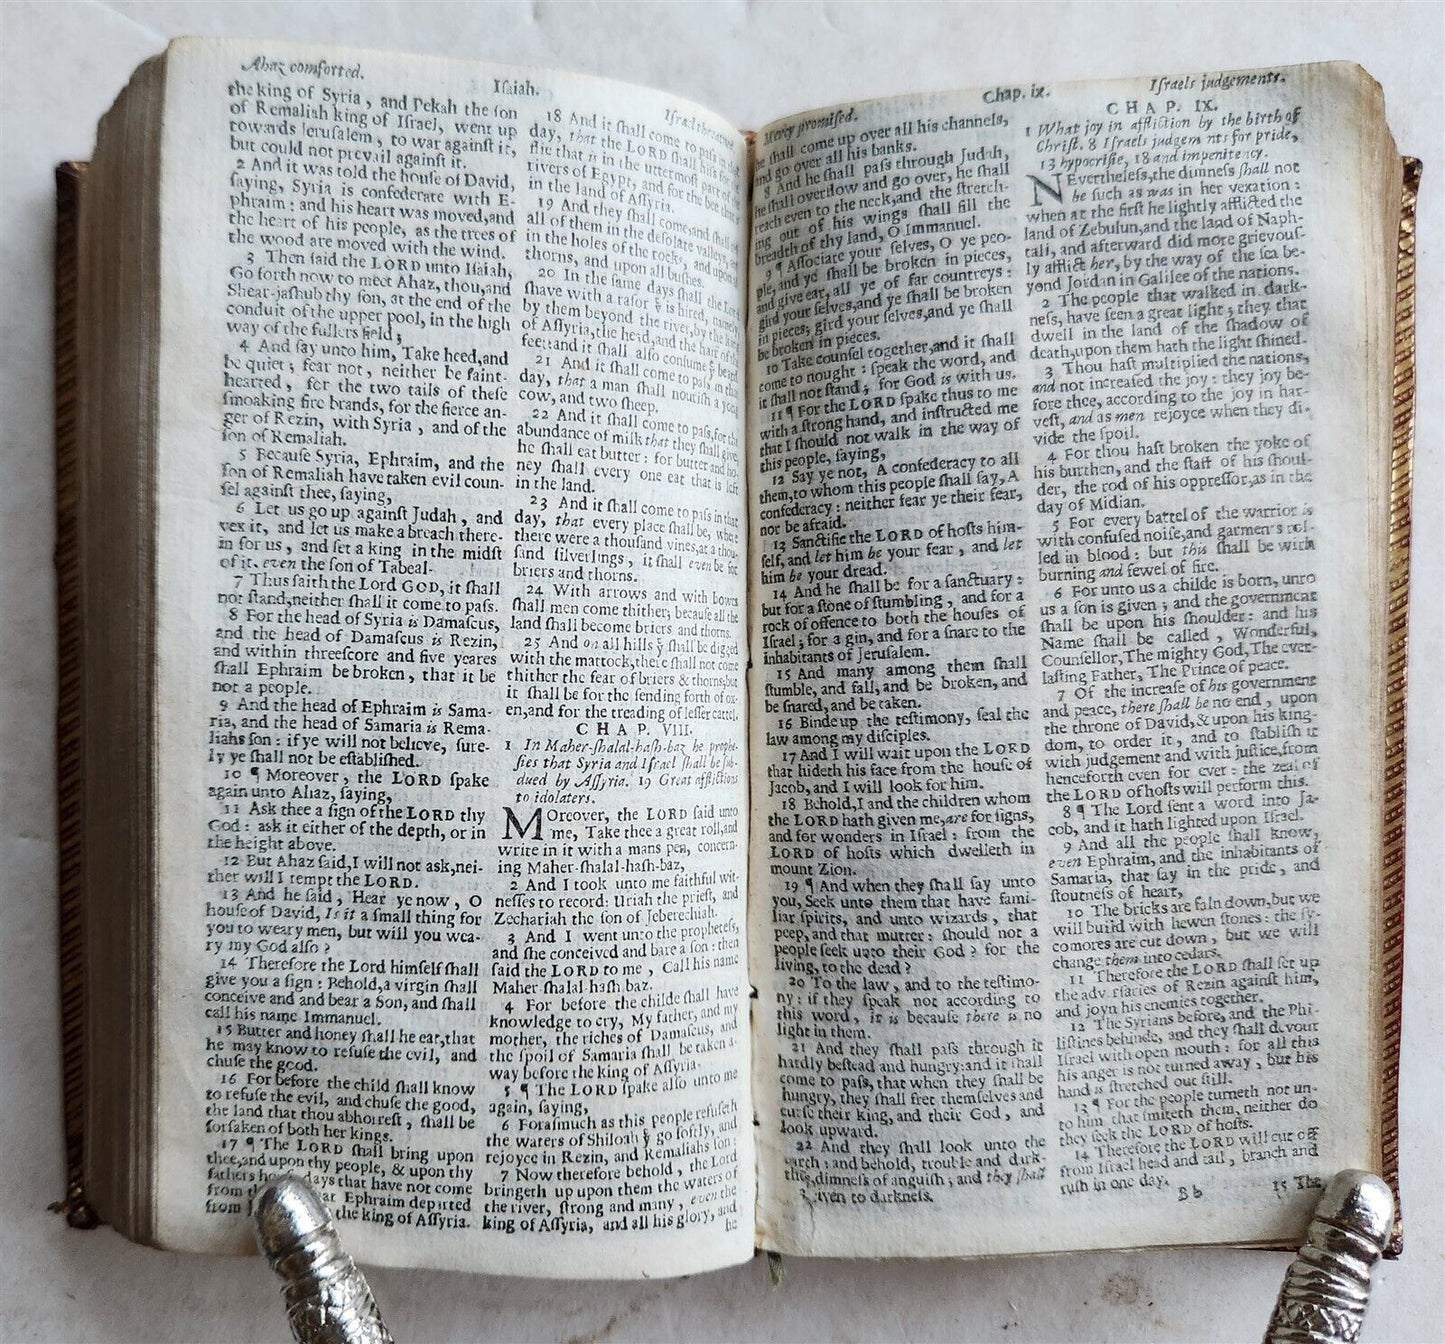 Ahaz comforted.
Iſaiah.
Iſrael threatned
the king of Syria , and Pekah the ſon
of Remaliah king of Iſrael, went up
towards Jeruſalem , to war againſt it,
but could not prevail againſt it.
2 And it was told the houſe of David,
ſaying, Syria is confederate with E-
phraim : and his heart was moved,and
the heart of his people, as the trees of
the wood are moved with the wind.
3 Then ſaid the LORD unto Iſaiah,
Go forth now to meet Ahaz, thou,and
Shear-jaſhub thy ſon, at the end of the
conduit of the upper pool, in the high
way of the fullers field ;
4 And ſay unto him, Take heed,and
be quiet ; fear not , neither be faint-
hearted , for the two tails of theſe
ſmoaking fire brands, for the fierce an-
ger of Rezin, with Syria , and of the
ſon of Remaliah.
5 Becauſe Syria, Ephraim, and the
ſon of Remaliah have taken evil coun-
ſel againſt thee, ſaying,
6 Let us go up againſt Judah , and
vex it, and let us make a breach there-
in for us , and ſet a king in the midſt
of it, even the ſon of Tabeal-
7 Thus ſaith the Lord GOD, it ſhall
not ſtand,neither ſhall it come to paſs.
8 For the head of Syria is Damaſcus,
and the head of Damaſcus is Rezin,
and within threeſcore and five yeares
ſhall Ephraim be broken , that it be
not a people.
9 And the head of Ephraim is Sama-
ria, and the head of Samaria is Rema-
liahs ſon : if ye will not believe, ſure-
ly ye ſhall not be eſtabliſhed.
10 ¶ Moreover , the LORD ſpake
again unto Ahaz, ſaying,
11 Ask thee a ſign of the LORD thy
God : ask it either of the depth, or in
the height above.
12 But Ahaz ſaid,I will not ask,nei-
ther will I tempt the LORD.
13 And he ſaid , Hear ye now , O
houſe of David, Is it a ſmall thing for
you to weary men, but will you wea-
ry my God alſo ?
14 Therefore the Lord himſelf ſhall
give you a ſign : Behold,a virgin ſhall
conceive and and bear a Son, and ſhall
call his name Immanuel.
15 Butter and honey ſhall he eat,that
he may know to refuſe the evil, and
chuſe the good.
16 For before the child ſhall know
to refuſe the evil, and chuſe the good,
the land that thou abhorreſt , ſhall be
forſaken of both her kings.
17 ¶ The LORD ſhall bring upon
thee,and upon thy people, & upon thy
fathers days that have not come
from Ephraim departed
from the king of Aſſyria.
18 And it ſhall come to paſs in
day, that the LORD ſhall hiſs for
flie that is in the uttermoſt part of
rivers of Egypt, and for the bee that
in the land of Aſſyria.
19 And they ſhall come,and ſhall
all of them in the deſolate valleys,
in the holes of the rocks, and upon
thorns, and upon all buſhes.
20 In the ſame day ſhall the Lord
ſhave with a raſor yͭ is hired, namely
by them beyond the river,by the king
of Aſſyria,the head,and the hair of the
feet:and it ſhall alſo conſume yͤ beard
21 And it ſhall come to paſs in that
day, that a man ſhall nouriſh a yong
cow, and two ſheep.
22 And it ſhall come to paſs,for the
abundance of milk that they ſhall give,
he ſhall eat butter : for butter and ho-
ney ſhall every one eat that is left
in the land.
23 And it ſhall come to paſs in that
day, that every place ſhall be, where
there were a thouſand vines,at a thou-
ſand ſilverlings , it ſhall even be for
briers and thorns.
24 With arrows and with bowes
ſhall men come thither; becauſe all the
land ſhall become briers and thorns.
25 And on all hills yͭ ſhall be digged
with the mattock,there ſhall not come
thither the fear of briers & thorns:but
it ſhall be for the ſending forth of ox-
en,and for the treading of leſſer cattel.
CHAP. VIII.
1 In Maher-ſhalal-haſh-baz he prophe-
ſies that Syria and Iſrael ſhall be ſub-
dued by Aſſyria. 19 Great afflictions
to idolaters.
Moreover, the LORD ſaid unto
me, Take thee a great roll,and
write in it with a mans pen, concern-
ing Maher-ſhalal-haſh-baz,
2 And I took unto me faithful wit-
neſſes to record: Uriah the prieſt, and
Zechariah the ſon of Jeberechiah.
3 And I went unto the propheteſs,
and ſhe conceived and bare a ſon : then
ſaid the LORD to me , Call his name
Maher ſhalal haſh baz.
4 For before the childe ſhall have
knowledge to cry, My father, and my
mother, the riches of Damaſcus, and
the ſpoil of Samaria ſhall be taken a-
way before the king of Aſſyria-
5 ¶ The LORD ſpake alſo unto me
again, ſaying,
6 Foraſmuch as this people refuſeth
the waters of Shiloah yͭ go ſoftly, and
rejoyce in Rezin, and Remaliahs ſon :
7 Now therefore behold , the Lord
bringeth up upon them the waters of
the river, ſtrong and many , even the
king of Aſſyria, and all his glory, and
he
Mercy promiſed.
Chap. ix.
Iſraels judgements.
he ſhall come up over all his channels,
and go over all his banks.
8 And he ſhall paſs through Judah,
he ſhall overflow and go over, he ſhall
reach even to the neck,and the ſtretch-
ing out of his wings ſhall fill the
breadth of thy land, O Immanuel.
9 ¶ Aſſociate your ſelves, O ye peo-
ple,and ye ſhall be broken in pieces,
and give ear, all ye of far countreys :
gird your ſelves,and ye ſhall be broken
in pieces; gird your ſelves,and ye ſhall
be broken in pieces.
10 Take counſel together,and it ſhall
come to nought : ſpeak the word, and
it ſhall not ſtand ; for God is with us.
11 ¶ For the LORD ſpake thus to me
with a ſtrong hand, and inſtructed me
that I ſhould not walk in the way of
this people, ſaying,
12 Say ye not, A confederacy to all
them,to whom this people ſhall ſay, A
confederacy : neither fear ye their fear,
nor be afraid.
13 Sanctifie the LORD of hoſts him-
ſelf, and let him be your fear , and let
him be your dread.
14 And he ſhall be for a ſanctuary :
but for a ſtone of ſtumbling , and for a
rock of offence to both the houſes of
Iſrael ; for a gin, and for a ſnare to the
inhabitants of Jeruſalem.
15 And many among them ſhall
ſtumble, and fall, and be broken, and
be ſnared, and be taken.
16 Binde up the teſtimony, ſeal the
law among my diſciples.
17 And I will wait upon the LORD
that hideth his face from the houſe of
Jacob, and I will look for him.
18 Behold,I and the children whom
the LORD hath given me,are for ſigns,
and for wonders in Iſrael : from the
LORD of hoſts which dwelleth in
mount Zion.
19 ¶ And when they ſhall ſay unto
you, Seek unto them that have fami-
liar ſpirits, and unto wizards , that
peep, and that mutter : ſhould not a
people ſeek unto their God ? for the
living, to the dead ?
20 To the law , and to the teſtimo-
ny : if they ſpeak not according to
this word , it is becauſe there is no
light in them.
21 And they ſhall paſs through it
hardly beſtead and hungry:and it ſhall
come to paſs, that when they ſhall be
hungry, they ſhall fret themſelves and
curſe their king, and their God , and
look upward.
22 And they ſhall look unto the
earth ; and behold, trouble and dark-
neſs,dimneſs of anguiſh ; and they ſhall
driven to darkneſs.
CHAP. IX.
1 What joy in affliction by the birth of
Chriſt. 8 Iſraels judgem nts for pride,
13 hypocriſie, 18 and impenitency.
NEvertheleſs,the dimneſs ſhall not
be ſuch as was in her vexation :
when at the firſt he lightly afflicted the
land of Zebulun,and the land of Naph-
tali, and afterward did more grievouſ-
ly afflict her, by the way of the ſea be-
yond Jordan in Galilee of the nations.
2 The people that walked in dark-
neſs, have ſeen a great light ; they that
dwell in the land of the ſhadow of
death,upon them hath the light ſhined-
3 Thou haſt multiplied the nations,
and not increaſed the joy : they joy be-
fore thee, according to the joy in har-
veſt, and as men rejoyce when they di-
vide the ſpoil.
4 For thou haſt broken the yoke of
his burthen, and the ſtaff of his ſhoul-
der, the rod of his oppreſſor,as in the
day of Midian.
5 For every battel of the warrior is
with confuſed noiſe,and garmen's rol-
led in blood : but this ſhall be with
burning and fewel of fire.
6 For unto us a childe is born, unto
us a ſon is given ; and the government
ſhall be upon his ſhoulder : and his
Name ſhall be called , Wonderful,
Counſellor,The mighty God,The ever-
laſting Father, The Prince of peace.
7 Of the increaſe of his government
and peace, there ſhall be no end , upon
the throne of David,& upon his king-
dom, to order it , and to ſtabliſh it
with judgement and with juſtice,from
henceforth even for ever : the zeal of
the LORD of hoſts will perform this.
8 ¶ The Lord ſent a word into Ja-
cob, and it hath lighted upon Iſrael.
9 And all the people ſhall know,
even Ephraim, and the inhabitants of
Samaria, that ſay in the pride , and
ſtoutneſs of heart,
10 The bricks are faln down,but we
will build with hewen ſtones : the ſy-
comores are cut down , but we will
change them into cedars.
11 Therefore the LORD ſhall ſet up
the adv rſaries of Rezin againſt him,
and joyn his enemies together.
12 The Syrians before, and the Phi-
liſtines behinde, and they ſhall d.vour
Iſrael with open mouth : for all this
his anger is not turned away , but his
hand is ſtretched out ſtill.
13 ¶ For the people turneth not un-
to him that ſmiteth them, neither do
they ſeek the LORD of hoſts.
14 Therefore the LORD will cut off
from Iſrael head and tail , branch and
ruſh in one day.
Bb
15 The